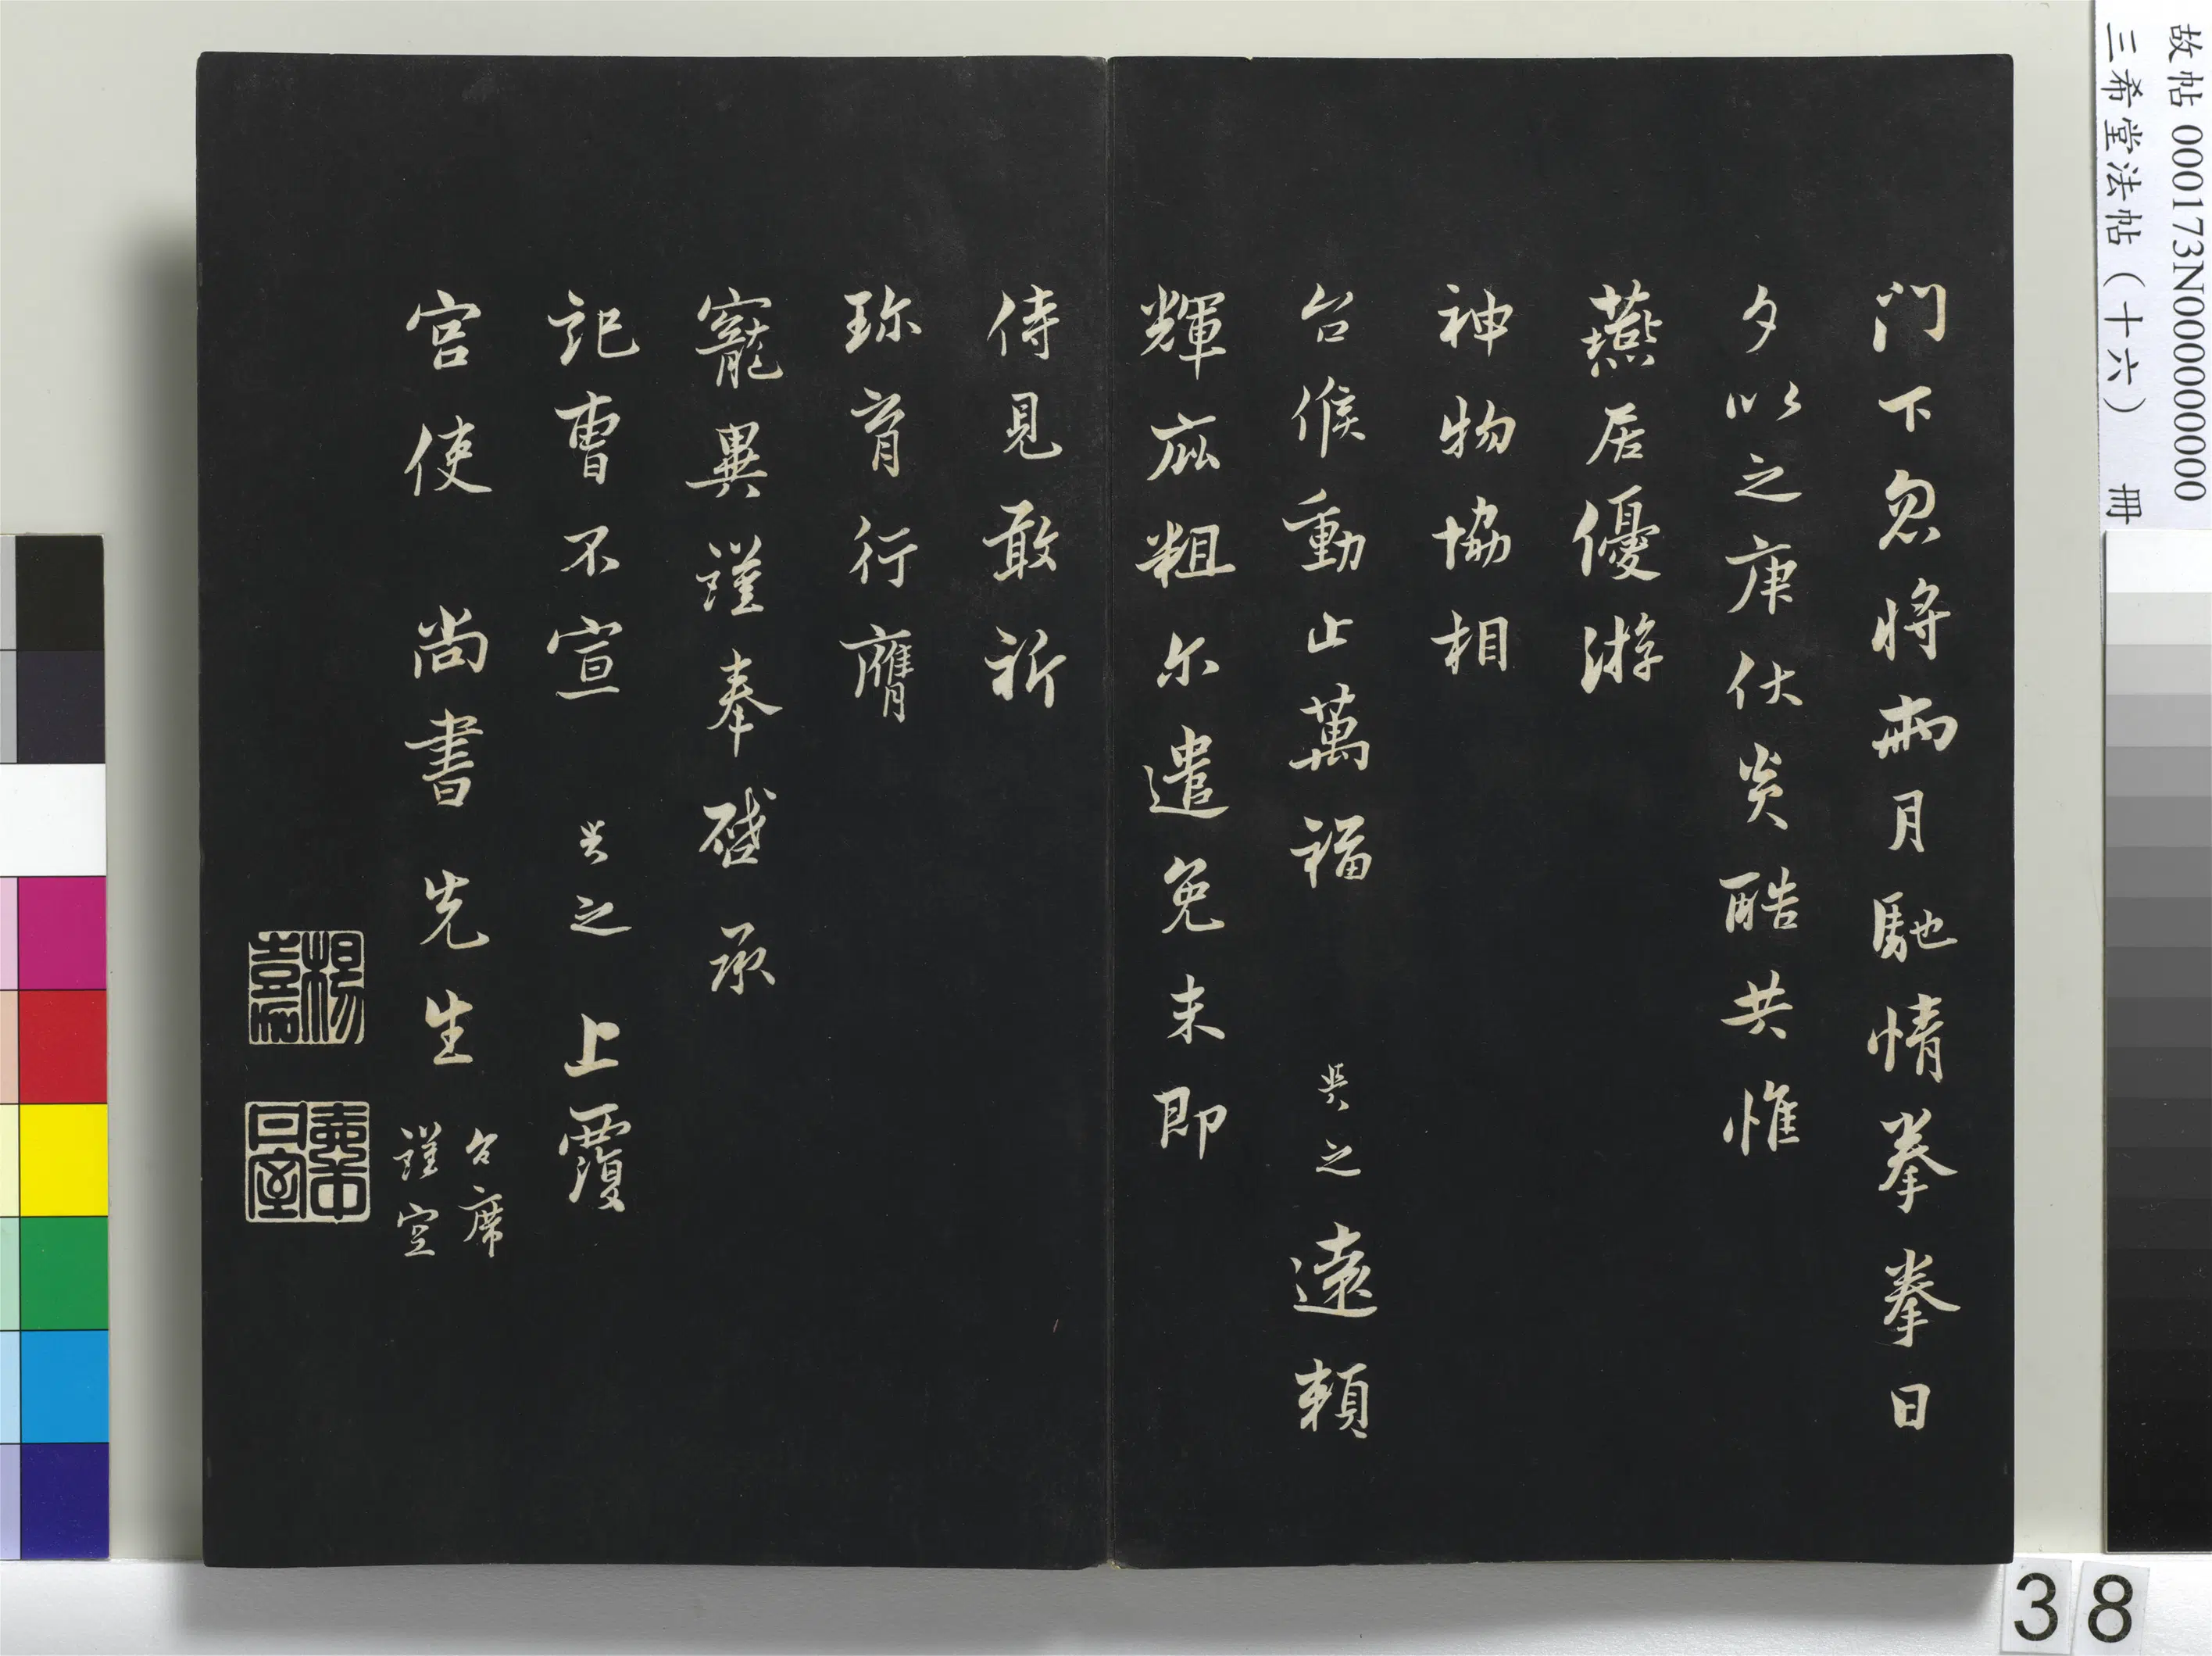 门下忽將兩月馳情拳拳日
夕以之庚伏炎酷共惟
燕居優游
神物協相
台候動止萬福 與之遠賴
輝庇粗尔遣免未即
侍見敢祈
珎育行膺
寵異謹奉啓承
記曹不宣 與之 上覆
宫使 尚書先生
台席
謹空
故帖 000173N000000000
三希堂法帖（十六） 冊
38